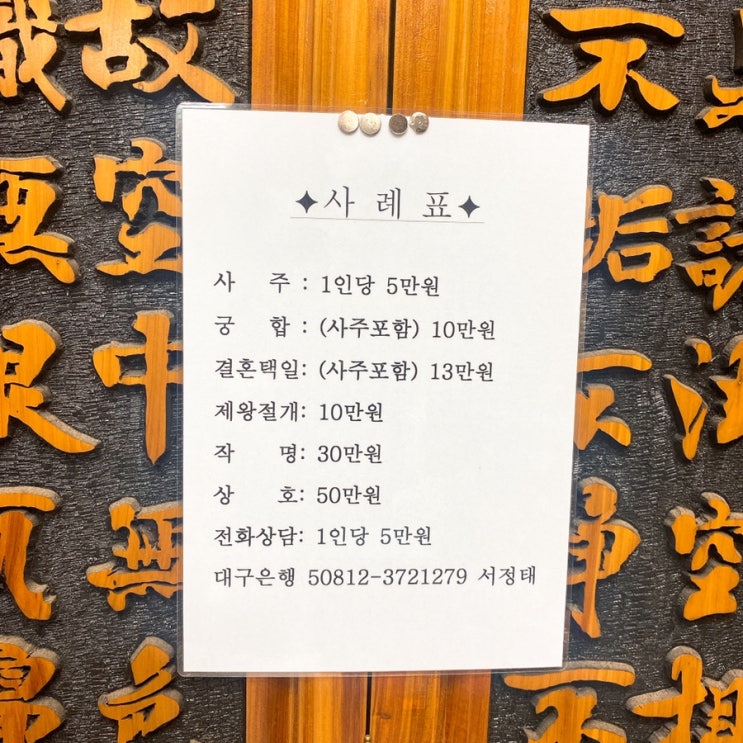 ✦사 례 표✦
사 주 : 1인당 5만원
궁 합 : (사주포함) 10만원
결혼택일: (사주포함) 13만원
제왕절개: 10만원
작 명: 30만원
상 호: 50만원
전화상담: 1인당 5만원
대구은행 50812-3721279 서정태
故
空
中
無
不
垢
空
不